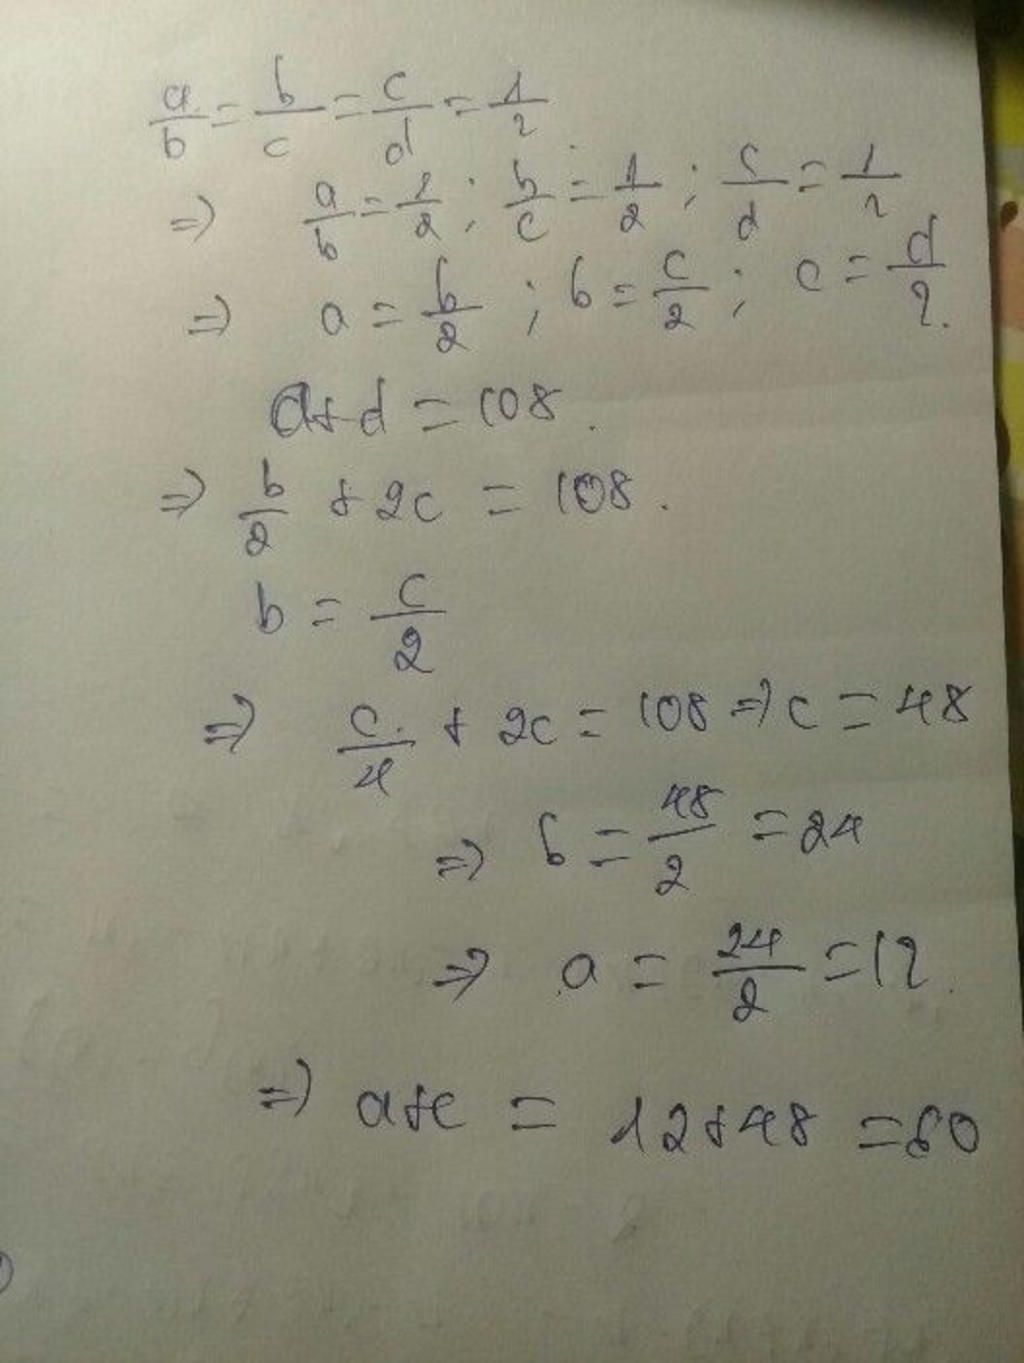 a/b = b/c = c/d = 1/2
⇒ a/b = 1/2 ; b/c = 1/2 ; c/d = 1/2
⇒ a = b/2 ; b = c/2 ; c = d/2.
a+d = 108.
⇒ b/2 + 2c = 108.
b = c/2
⇒ c/4 + 2c = 108 ⇒ c = 48
⇒ b = 48/2 = 24
⇒ a = 24/2 = 12.
⇒ a+c = 12+48 = 60